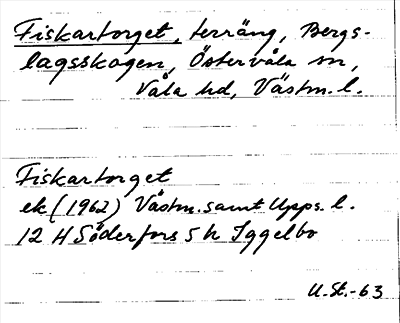 Fiskartorget, terräng, Bergs-
lagsskogen, Östervåla sn,
Våla hd, Västm. l.
Fiskartorget
ek (1962) Västm. samt Upps. l.
12 H Söderfors 5 h Iggelbo
U.St.-63